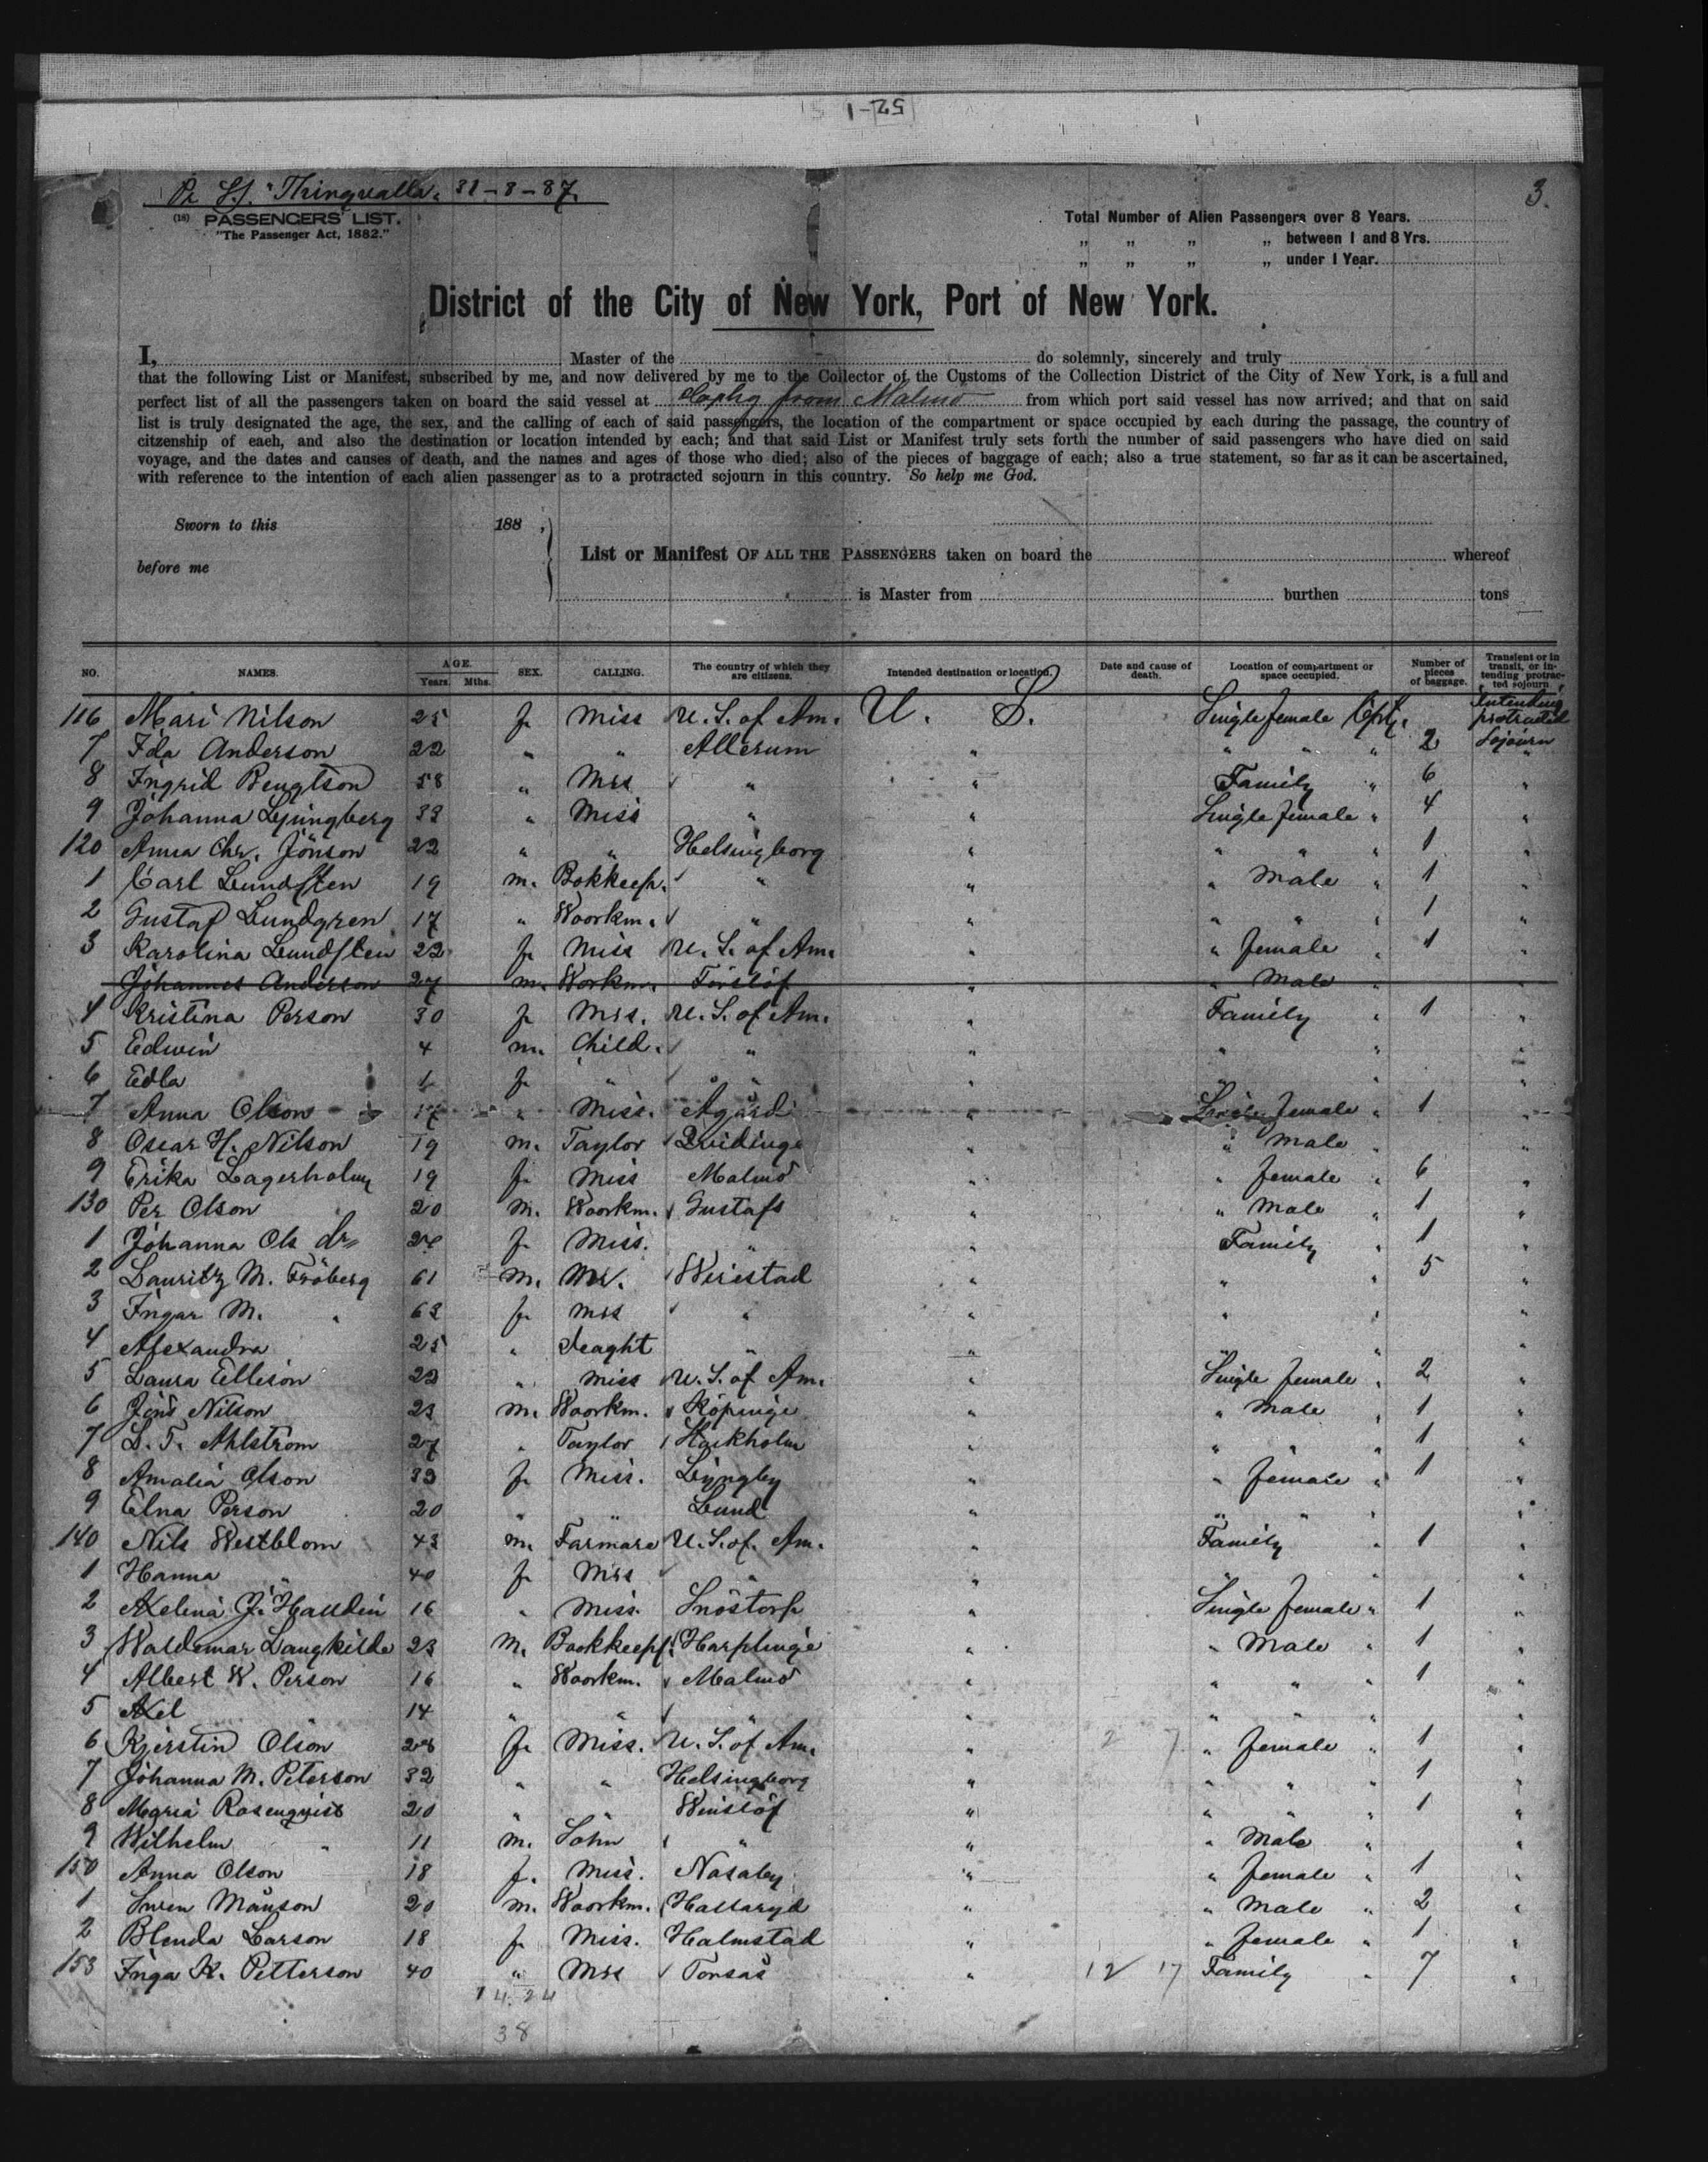 52-1
Pr S.S. "Thingvalla" 31-8-87.
3.
(18) PASSENGERS' LIST.
"The Passenger Act, 1882."
Total Number of Alien Passengers over 8 Years.
„ „ „ „ between 1 and 8 Yrs.
„ „ „ „ under 1 Year.
District of the City of New York, Port of New York.
I, Master of the do solemnly, sincerely and truly
that the following List or Manifest, subscribed by me, and now delivered by me to the Collector of the Customs of the Collection District of the City of New York, is a full and
perfect list of all the passengers taken on board the said vessel at from Malmö from which port said vessel has now arrived; and that on said
list is truly designated the age, the sex, and the calling of each of said passengers, the location of the compartment or space occupied by each during the passage, the country of
citzenship of eaeh, and also the destination or location intended by each; and that said List or Manifest truly sets forth the number of said passengers who have died on said
voyage, and the dates and causes of death, and the names and ages of those who died; also of the pieces of baggage of each; also a true statement, so far as it can be ascertained,
with reference to the intention of each alien passenger as to a protracted sojourn in this country. So help me God.
Sworn to this 188 ,
before me
List or Manifest OF ALL THE PASSENGERS taken on board the whereof
is Master from burthen tons
NO. NAMES. AGE. Years. Mths. SEX. CALLING. The country of which they are citizens. Intended destination or location. Date and cause of death. Location of compartment or space occupied. Number of pieces of baggage. Transient or in transit, or intending protracted sojourn.
116 Mari Nilson 25 f. Miss U. S. of Am. U. S. Single female Cpt. Intending protracted Sojourn
7 Ida Anderson 22 " " Allerum " " " " 2 "
8 Ingrid Bengtson 58 " Mrs " " Family " 6 "
9 Johanna Ljungberg 33 " Miss " " Single female " 4 "
120 Anna Chr. Jönson 22 " " Helsingborg " " " " 1 "
1 Carl Lundsten 19 m. Bokkeep. " " " Male " 1 "
2 Gustaf Lundgren 17 " Woorkm. " " " " " 1 "
3 Karolina Lundsten 22 f. Miss U. S. of Am. " " female " 1 "
Johannes Anderson 27 m. Workm. Förslöf " " Male " "
4 Kristina Person 30 f. Mrs. U. S. of Am. " Family " 1 "
5 Edwin 4 m. Child. " " " " "
6 Edla 1 f. " " " " "
7 Anna Olson 17 " Miss. Agård " Single female " 1 "
8 Oscar H. Nilson 19 m. Taylor Qvidinge " " Male " "
9 Erika Lagerholm 19 f. Miss Malmö " " female " 6 "
130 Per Olson 20 m. Woorkm. Gustafs " " Male " 1 "
1 Johanna Ols dr 24 f. Miss. " " Family " 1 "
2 Lauritz M. Fröberg 61 m. Mr. Wirestad " " " 5 "
3 Ingar M. " 63 f. Mrs " " " " "
4 Alexandra 25 " deaght " " " " "
5 Laura Ellison 22 " Miss U. S. of Am. " Single female " 2 "
6 Jöns Nilson 23 m. Woorkm. Köpinge " " Male " 1 "
7 L. T. Ahlström 27 " Taylor " " " " 1 "
8 Amalia Olson 33 f. Miss. Ljungby " " female " 1 "
9 Elna Person 20 " " Lund " " " " "
140 Nils Westblom 43 m. Farmare U. S. of. Am. " Family " 1 "
1 Hanna " 40 f. Mrs " " " "
2 Axelina J. Halldin 16 " Miss. Snöstorp " Single female " 1 "
3 Waldemar Langkilde 23 m. Bookkeep. Harplinge " " Male " 1 "
4 Albert W. Person 16 " Woorkm. Malmö " " " " 1 "
5 Axel " 14 " " " " " " " "
6 Kjerstin Olson 28 f. Miss. U. S. of Am. " 2 7 " female " 1 "
7 Johanna M. Peterson 32 " " Helsingborg " " " " 1 "
8 Maria Rosenqvist 20 " " Winslöf " " " " 1 "
9 Wilhelm " 11 m. Sohn " " " Male " "
150 Anna Olson 18 f. Miss. Nasaby " " female " 1 "
1 Swen Månson 20 m. Woorkm. Hallaryd " " Male " 2 "
2 Blenda Larson 18 f. Miss. Halmstad " " female " 1 "
153 Inga K. Petterson 40 " Mrs Torsås " 12 17 Family " 7 "
14. 24
38